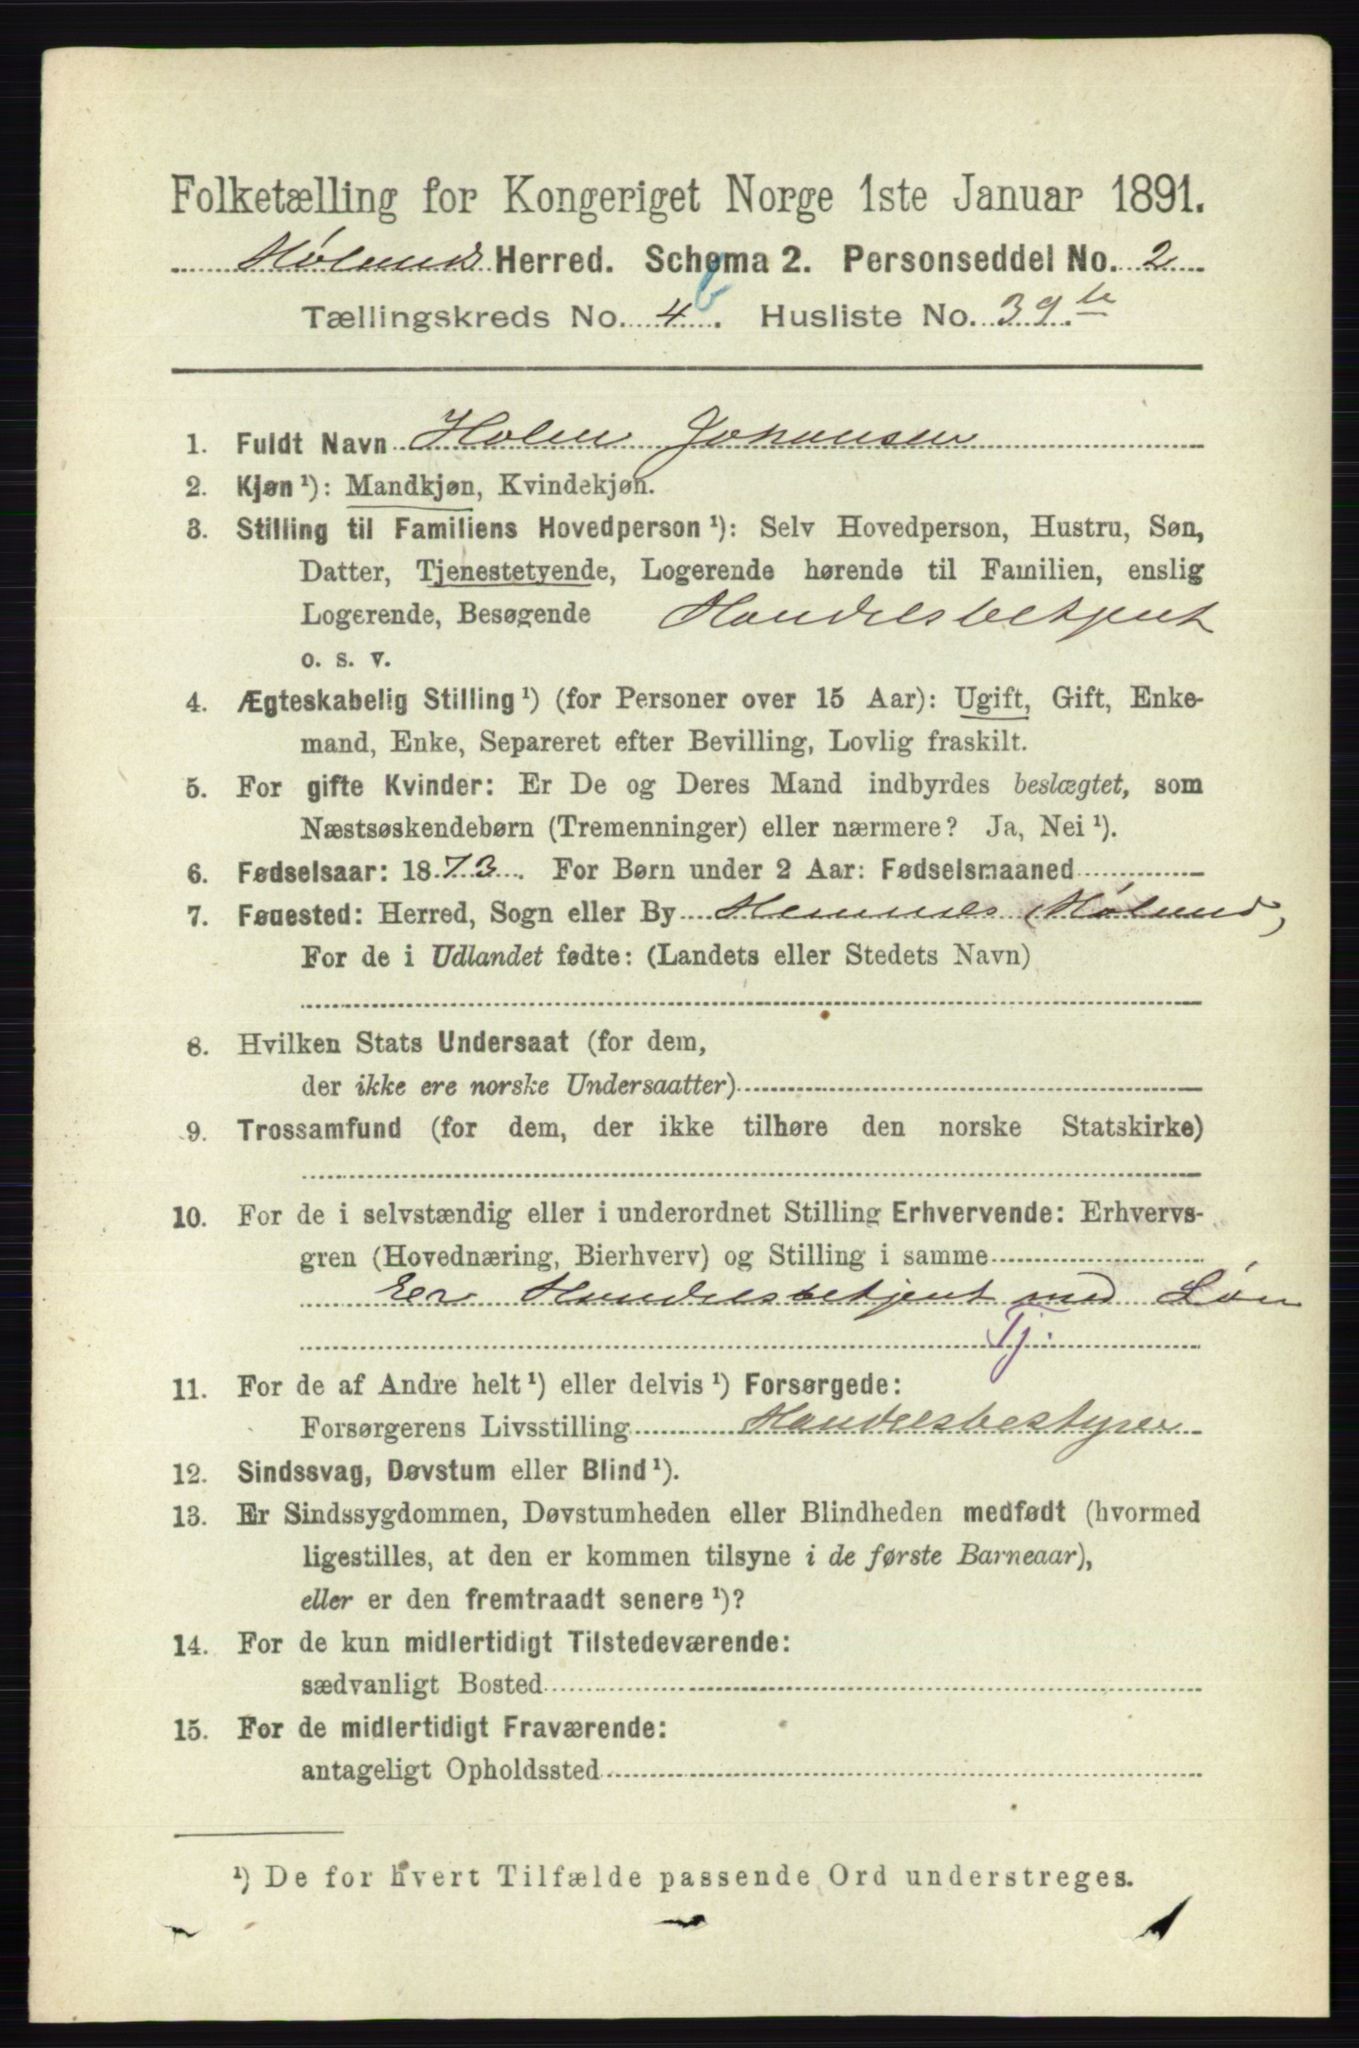 Folketælling for Kongeriget Norge 1ste Januar 1891.
Høland Herred. Schema 2. Personseddel No. 2
Tællingskreds No. 4 b. Husliste No. 39 te
1. Fuldt Navn Holm Johansen
2. Kjøn ¹): Mandkjøn, Kvindekjøn.
3. Stilling til Familiens Hovedperson ¹): Selv Hovedperson, Hustru, Søn,
Datter, Tjenestetyende, Logerende hørende til Familien, enslig
Logerende, Besøgende Handelsbetjent
o. s. v.
4. Ægteskabelig Stilling ¹) (for Personer over 15 Aar): Ugift, Gift, Enke-
mand, Enke, Separeret efter Bevilling, Lovlig fraskilt.
5. For gifte Kvinder: Er De og Deres Mand indbyrdes beslægtet, som
Næstsøskendebørn (Tremenninger) eller nærmere? Ja, Nei ¹).
6. Fødselsaar: 1873. For Børn under 2 Aar: Fødselsmaaned
7. Føuested: Herred, Sogn eller By Hemnes (Høland)
For de i Udlandet fødte: (Landets eller Stedets Navn)
8. Hvilken Stats Undersaat (for dem,
der ikke ere norske Undersaatter)
9. Trossamfund (for dem, der ikke tilhøre den norske Statskirke)
10. For de i selvstændig eller i underordnet Stilling Erhvervende: Erhvervs-
gren (Hovednæring, Bierhverv) og Stilling i samme
Er Handelsbetjent med Løn
Tj.
11. For de af Andre helt ¹) eller delvis ¹) Forsørgede:
Forsørgerens Livsstilling Handelsbestyrer
12. Sindssvag, Døvstum eller Blind ¹).
13. Er Sindssygdommen, Døvstumheden eller Blindheden medfødt (hvormed
ligestilles, at den er kommen tilsyne i de første Barneaar),
eller er den fremtraadt senere ¹)?
14. For de kun midlertidigt Tilstedeværende:
sædvanligt Bosted
15. For de midlertidigt Fraværende:
antageligt Opholdssted
¹) De for hvert Tilfælde passende Ord understreges.